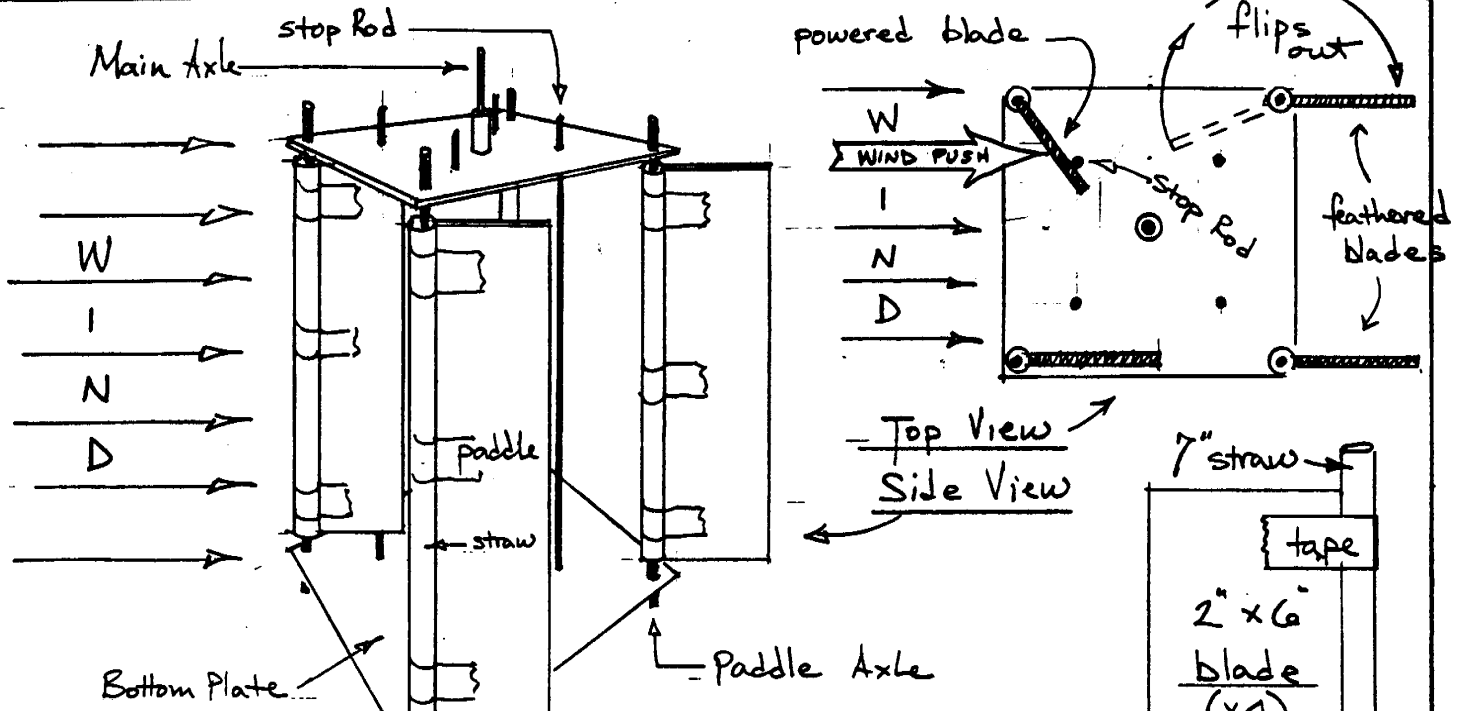 stop Rod
Main Axle
W
I
N
D
paddle
straw
Bottom Plate
Paddle Axle
powered blade
flips
out
W
WIND PUSH
I
N
D
stop Rod
feathered
blades
Top View
Side View
7" straw
tape
2" x 6"
blade